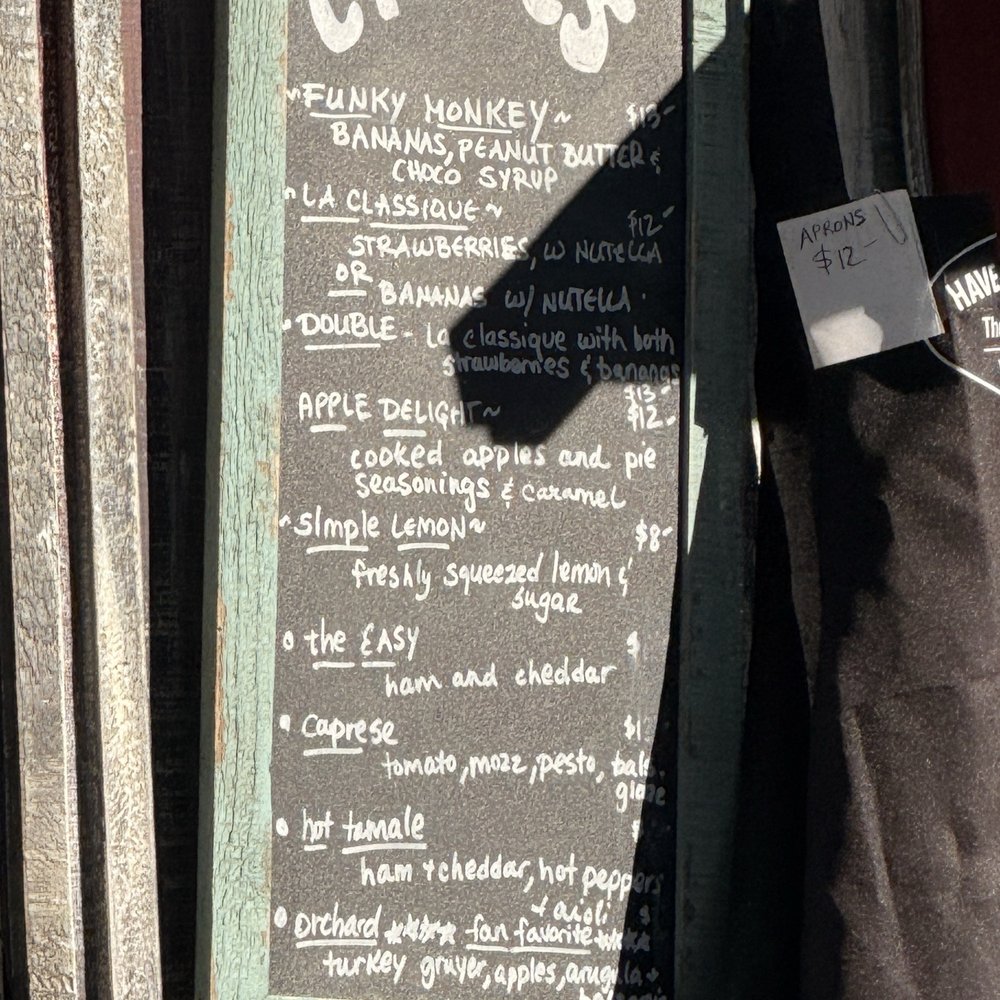 ~FUNKY MONKEY~ $13-
BANANAS, PEANUT BUTTER &
CHOCO SYRUP
~LA CLASSIQUE~ $12-
STRAWBERRIES, W NUTELLA
OR
BANANAS W/ NUTELLA.
DOUBLE - La classique with both
strawberries & bananas
$13-
APPLE DELIGHT~ $12-
cooked apples and pie
seasonings & caramel
~Simple LEMON~ $8-
freshly squeezed lemon &
sugar
the EASY $
ham and cheddar
Caprese
tomato, mozz, pesto, bals.
glaze
hot tamale $
ham + cheddar, hot peppers
+ aioli
Orchard fan favorite
turkey gruyer, apples, arugula +
APRONS
$12-
HAVE